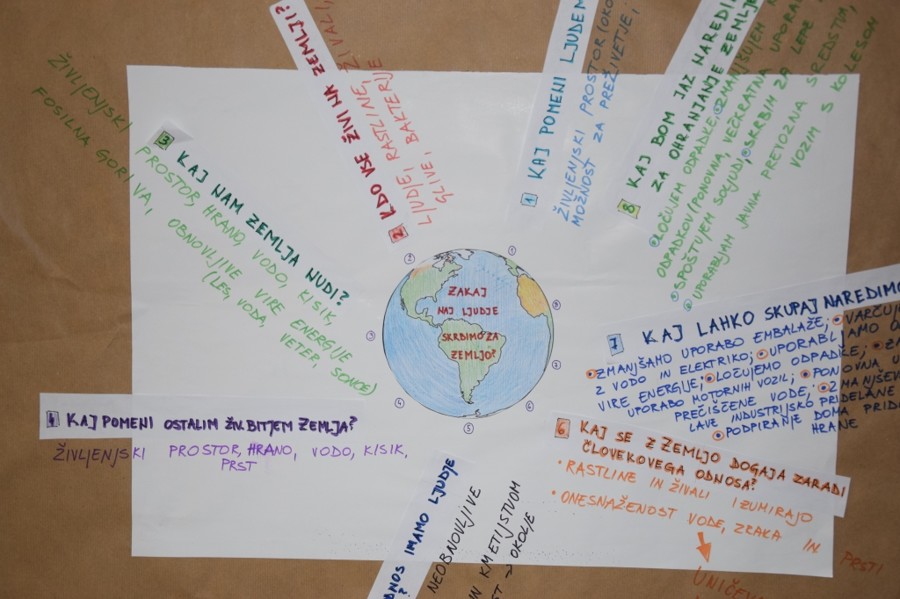 ZAKAJ
NAJ LJUDJE
SKRBIMO ZA
ZEMLJO?
1 KAJ POMENI LJUDEM
ŽIVLJENJSKI PROSTOR (OKO
MOŽNOST ZA PREŽIVETJE,
2 KDO VSE ŽIVI NA ZEMLJI?
LJUDJE, RASTLINE, ŽIVALI,
GLIVE, BAKTERIJE
3 KAJ NAM ZEMLJA NUDI?
ŽIVLJENJSKI PROSTOR, HRANO, VODO, KISIK,
FOSILNA GORIVA, OBNOVLJIVE VIRE ENERGIJE
(LES, VODA, VETER, SONCE)
4 KAJ POMENI OSTALIM ŽIV. BITJEM ZEMLJA?
ŽIVLJENJSKI PROSTOR, HRANO, VODO, KISIK,
PRST
DNOS IMAMO LJUDJE
?
NEOBNOVLJIVE
IN KMETIJSTVOM
ST → OKOLJE
6 KAJ SE Z ZEMLJO DOGAJA ZARADI
ČLOVEKOVEGA ODNOSA?
• RASTLINE IN ŽIVALI IZUMIRAJO
• ONESNAŽENOST VODE, ZRAKA IN PRSTI
UNIČEV
7 KAJ LAHKO SKUPAJ NAREDIMO
ZMANJŠAMO UPORABO EMBALAŽE; VARČUJ
Z VODO IN ELEKTRIKO; UPORABLJAMO O
VIRE ENERGIJE; LOČUJEMO ODPADKE; ZM
UPORABO MOTORNIH VOZIL; PONOVNA U
PREČIŠČENE VODE; ZMANJŠEV
LAVE INDUSTRIJSKO PRIDELANE
PODPIRANJE DOMA PRIDE
HRANE
8 KAJ BOM JAZ NAREDI
ZA OHRANJANJE ZEMLJE
LOČUJEM ODPADKE, ZMANJŠUJEM K
ODPADKOV (PONOVNA, VEČKRATNA UPORAB
SPOŠTUJEM SOLJUDI, SKRBIM ZA LEPE
UPORABLJAM JAVNA PREVOZNA SREDSTVA,
VOZIM S KOLESOM